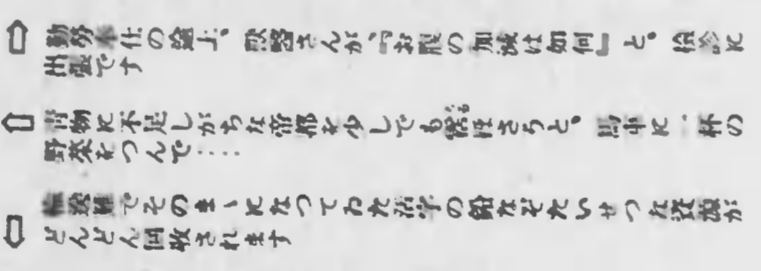 ⇧ 勤労奉仕の途上、獣医さんが、『お腹の加減は如何』と、検診に
出張です
⇧ 青物に不足しがちな帝都を少しでも潤ほさうと、馬車に一杯の
野菜をつんで・・・・
⇩ でそのまゝになつてゐた活字の鉛なぞたいせつな資源が
どんどん回収されます